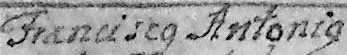 Francisca Antonia